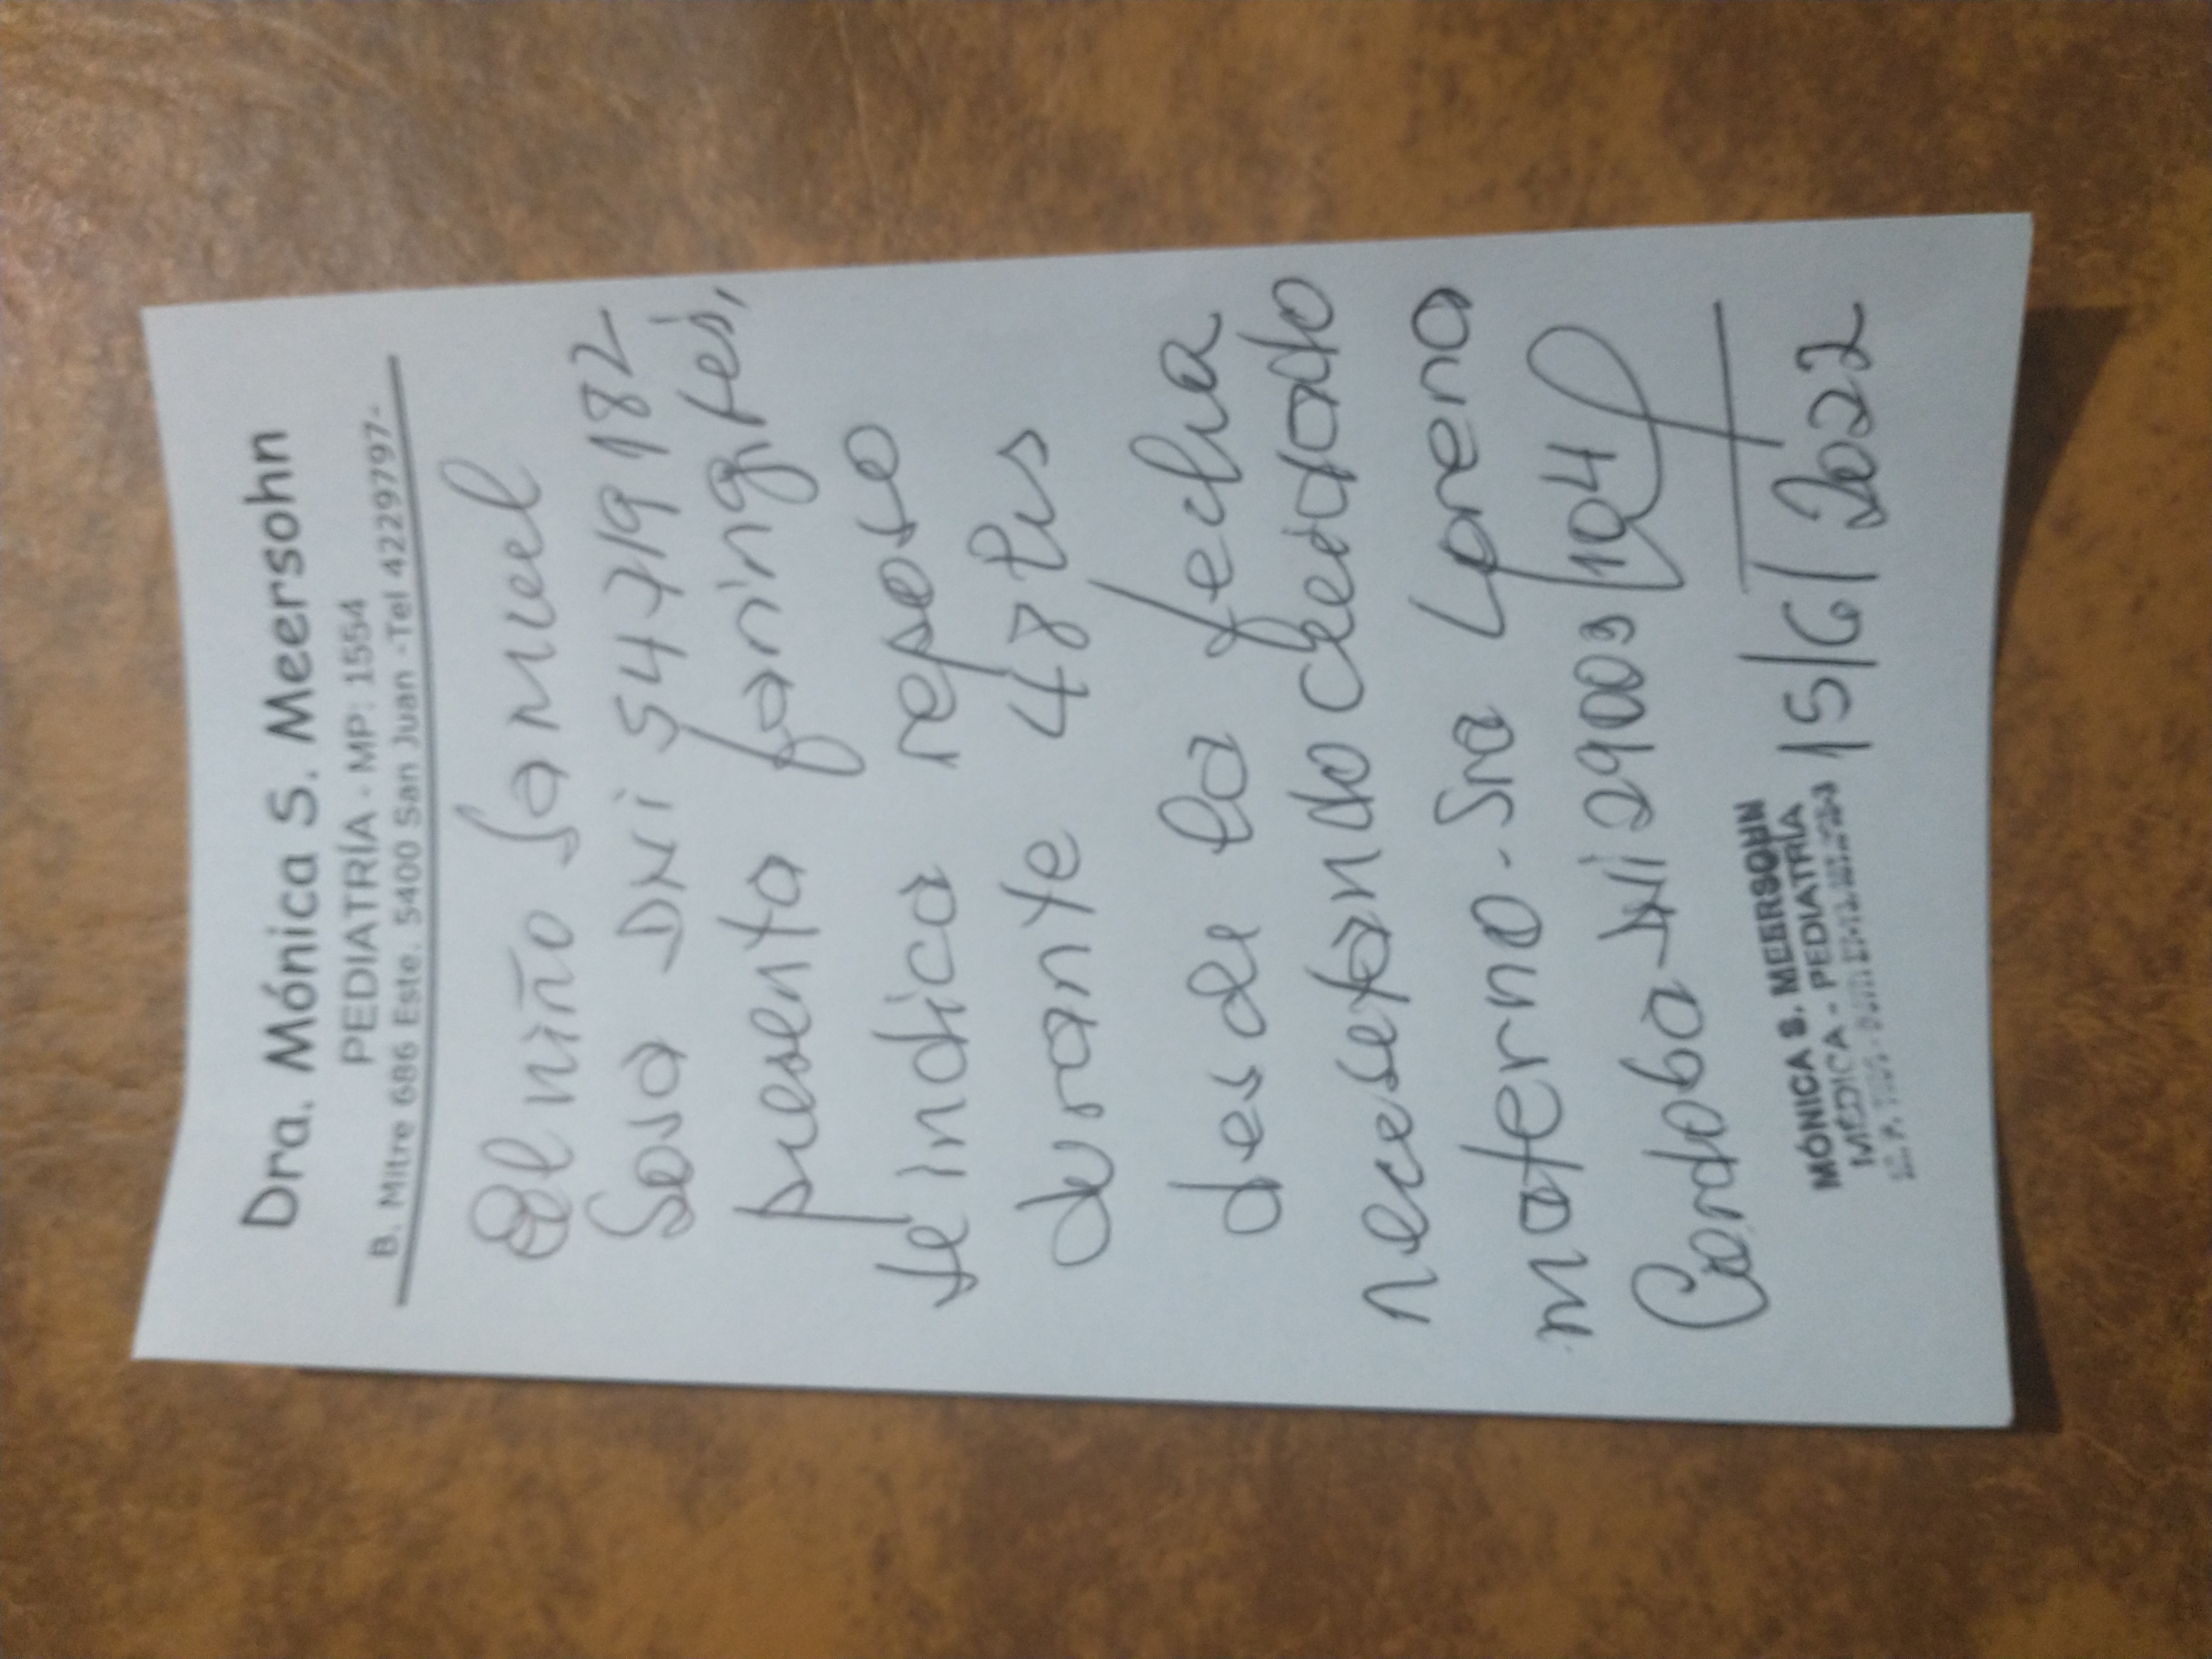 Dra. Mónica S. Meersohn
PEDIATRÍA - MP: 1554
B. Mitre 686 Este. 5400 San Juan -Tel 4229797-
El niño Samuel
Sosa DNI 54719182
presenta faringitis,
se indica reposo
durante 48 hs
desde la fecha
necesetando cuidado
materno - Sra Lorena
Cordoba DNI 29009104
MÓNICA S. MEERSOHN
MÉDICA - PEDIATRÍA
15/6/2022